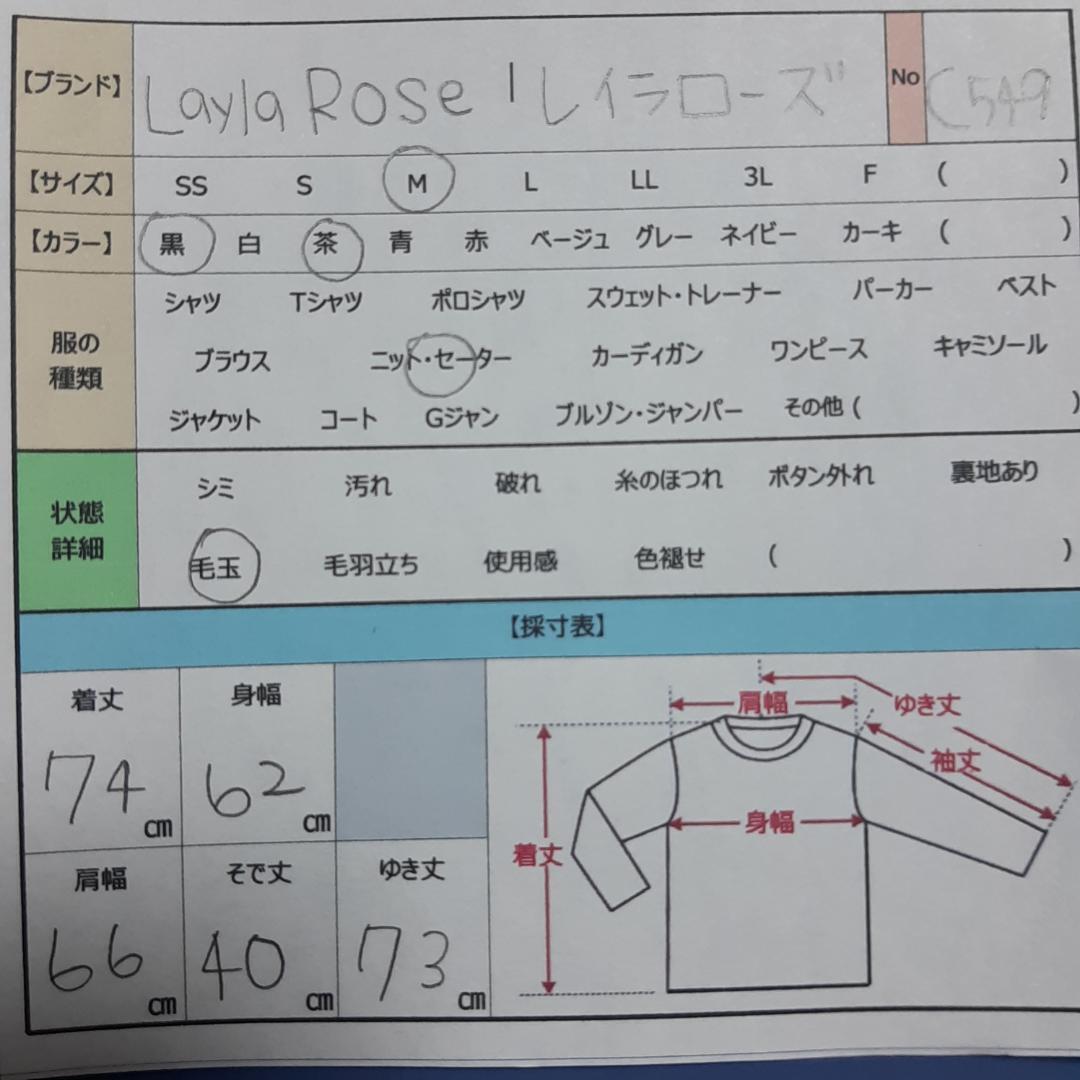 【ブランド】 Layla Rose 1 レイラローズ No C549
【サイズ】 SS S M L LL 3L F ( )
【カラー】 黒 白 茶 青 赤 ベージュ グレー ネイビー カーキ ( )
服の
種類
シャツ Tシャツ ポロシャツ スウェット・トレーナー パーカー ベスト
ブラウス ニット・セーター カーディガン ワンピース キャミソール
ジャケット コート Gジャン ブルゾン・ジャンパー その他 ( )
状態
詳細
シミ 汚れ 破れ 糸のほつれ ボタン外れ 裏地あり
毛玉 毛羽立ち 使用感 色褪せ ( )
【採寸表】
着丈 身幅
74 cm 62 cm
肩幅 そで丈 ゆき丈
66 cm 40 cm 73 cm
肩幅 ゆき丈
袖丈
身幅
着丈